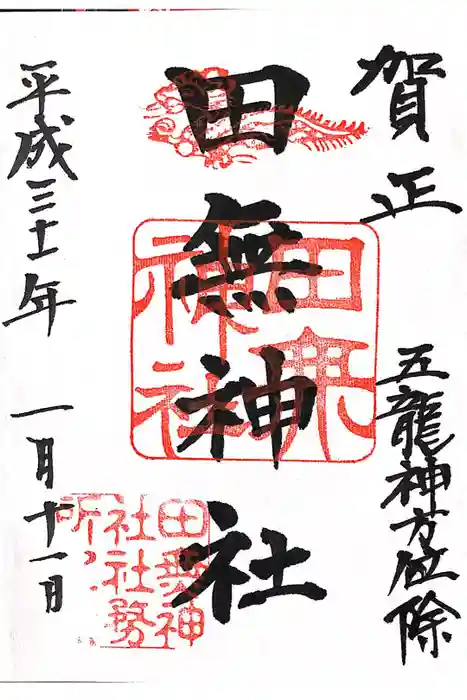 賀正
五龍神方位除
田無神社
平成三十一年 一月十一日
田無
神社
田無神
社社務
所